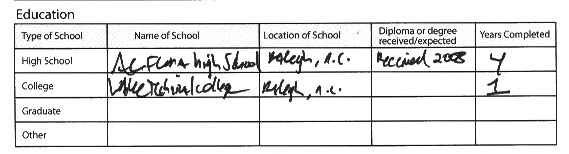 Education
Type of School Name of School Location of School Diploma or degree received/expected Years Completed
High School High School Raleigh, N.C. Received 2008 4
College Technical College Raleigh, N.C. 1
Graduate
Other